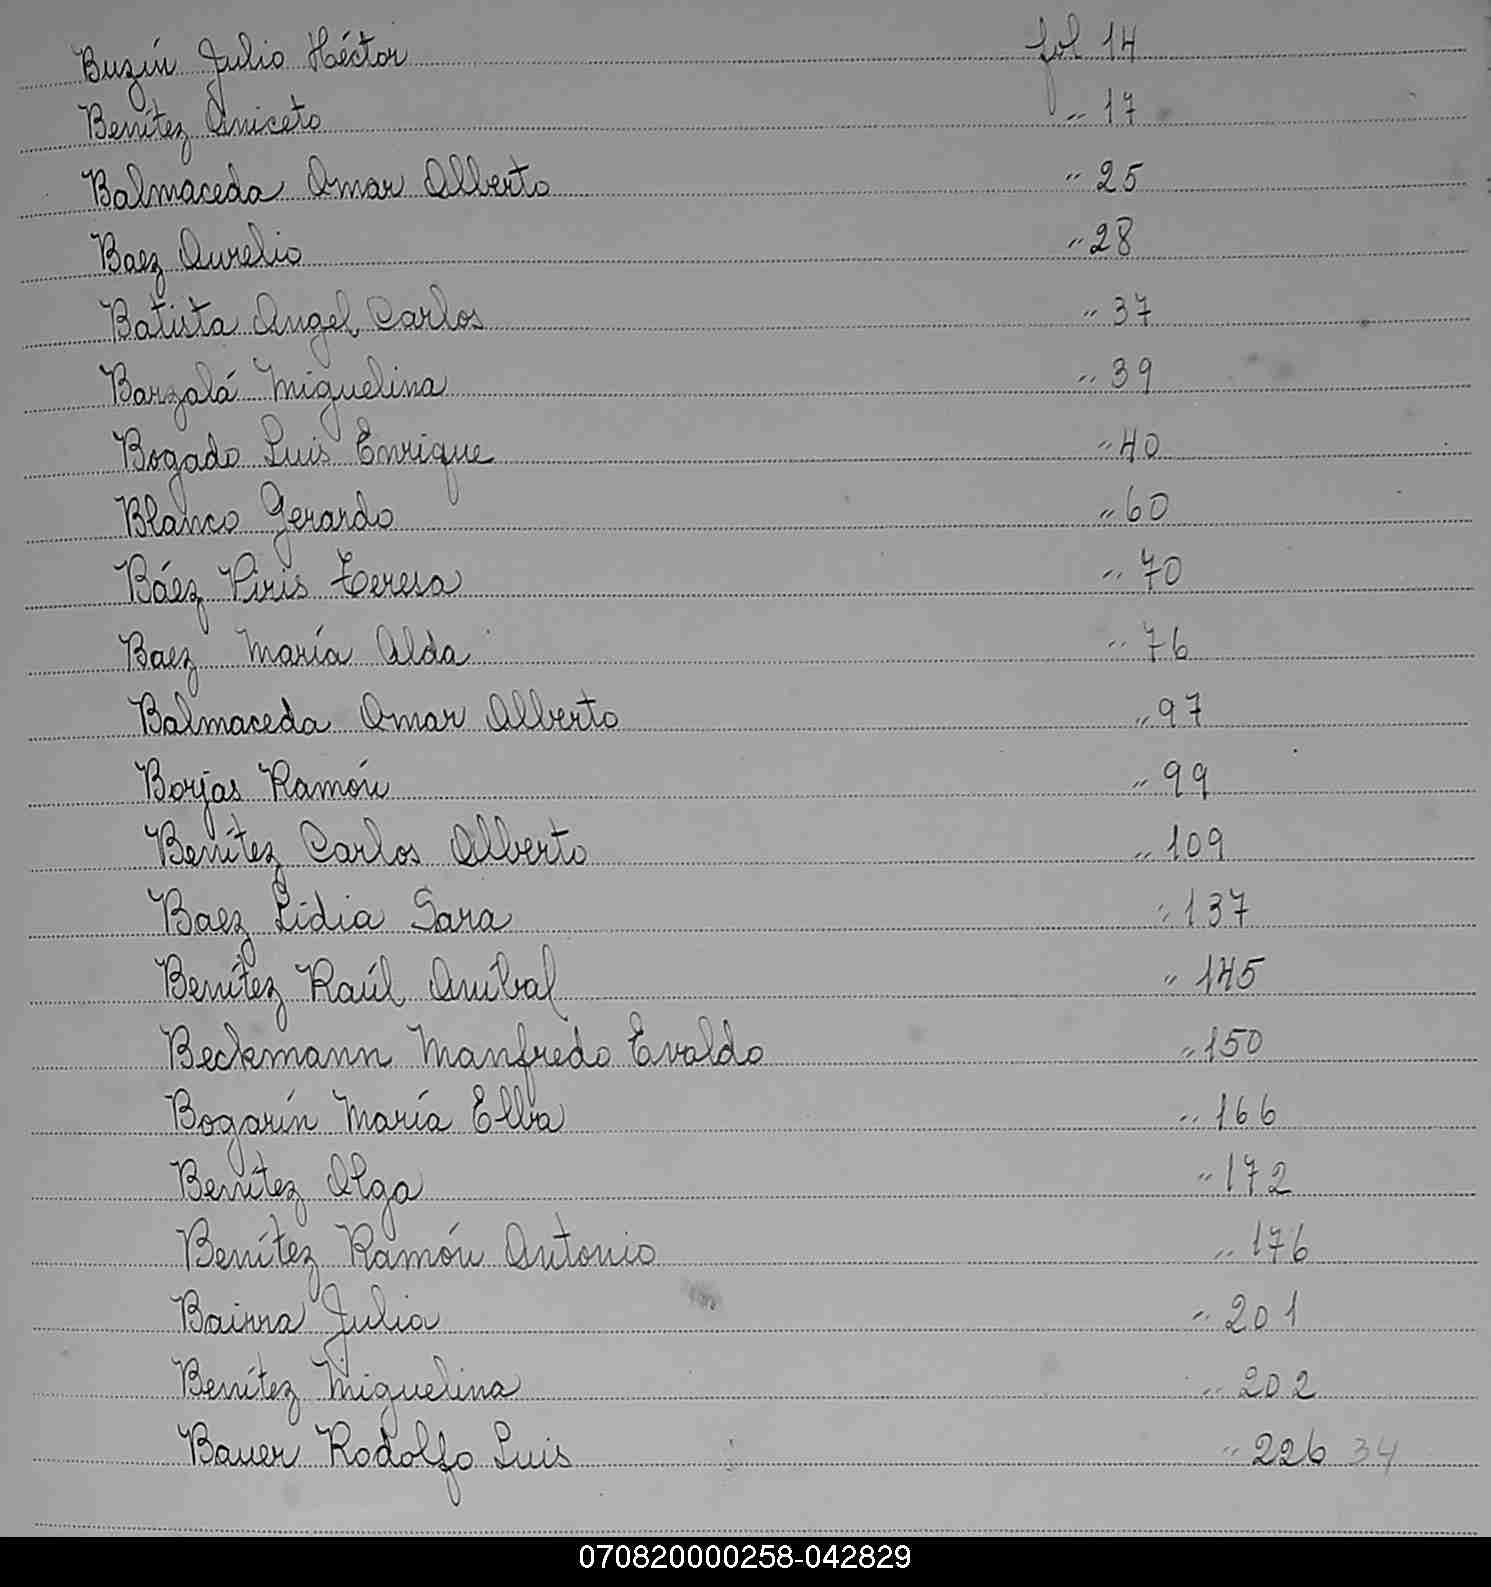 Buzín Julio Héctor fol 14
Benítez Aniceto " 17
Balmaceda Omar Alberto " 25
Baez Aurelio " 28
Batista Angel Carlos " 37
Barzalá Miguelina " 39
Bogado Luis Enrique " 40
Blanco Gerardo " 60
Báez Piris Teresa " 70
Baez María Alda " 76
Balmaceda Omar Alberto " 97
Borjas Ramón " 99
Benítez Carlos Alberto " 109
Baez Lidia Sara " 137
Benítez Raúl Aníbal " 145
Beckmann Manfredo Evaldo " 150
Bogarín María Elba " 166
Benítez Olga " 172
Benítez Ramón Antonio " 176
Bairra Julia " 201
Benítez Miguelina " 202
Bauer Rodolfo Luis " 226 34
070820000258-042829